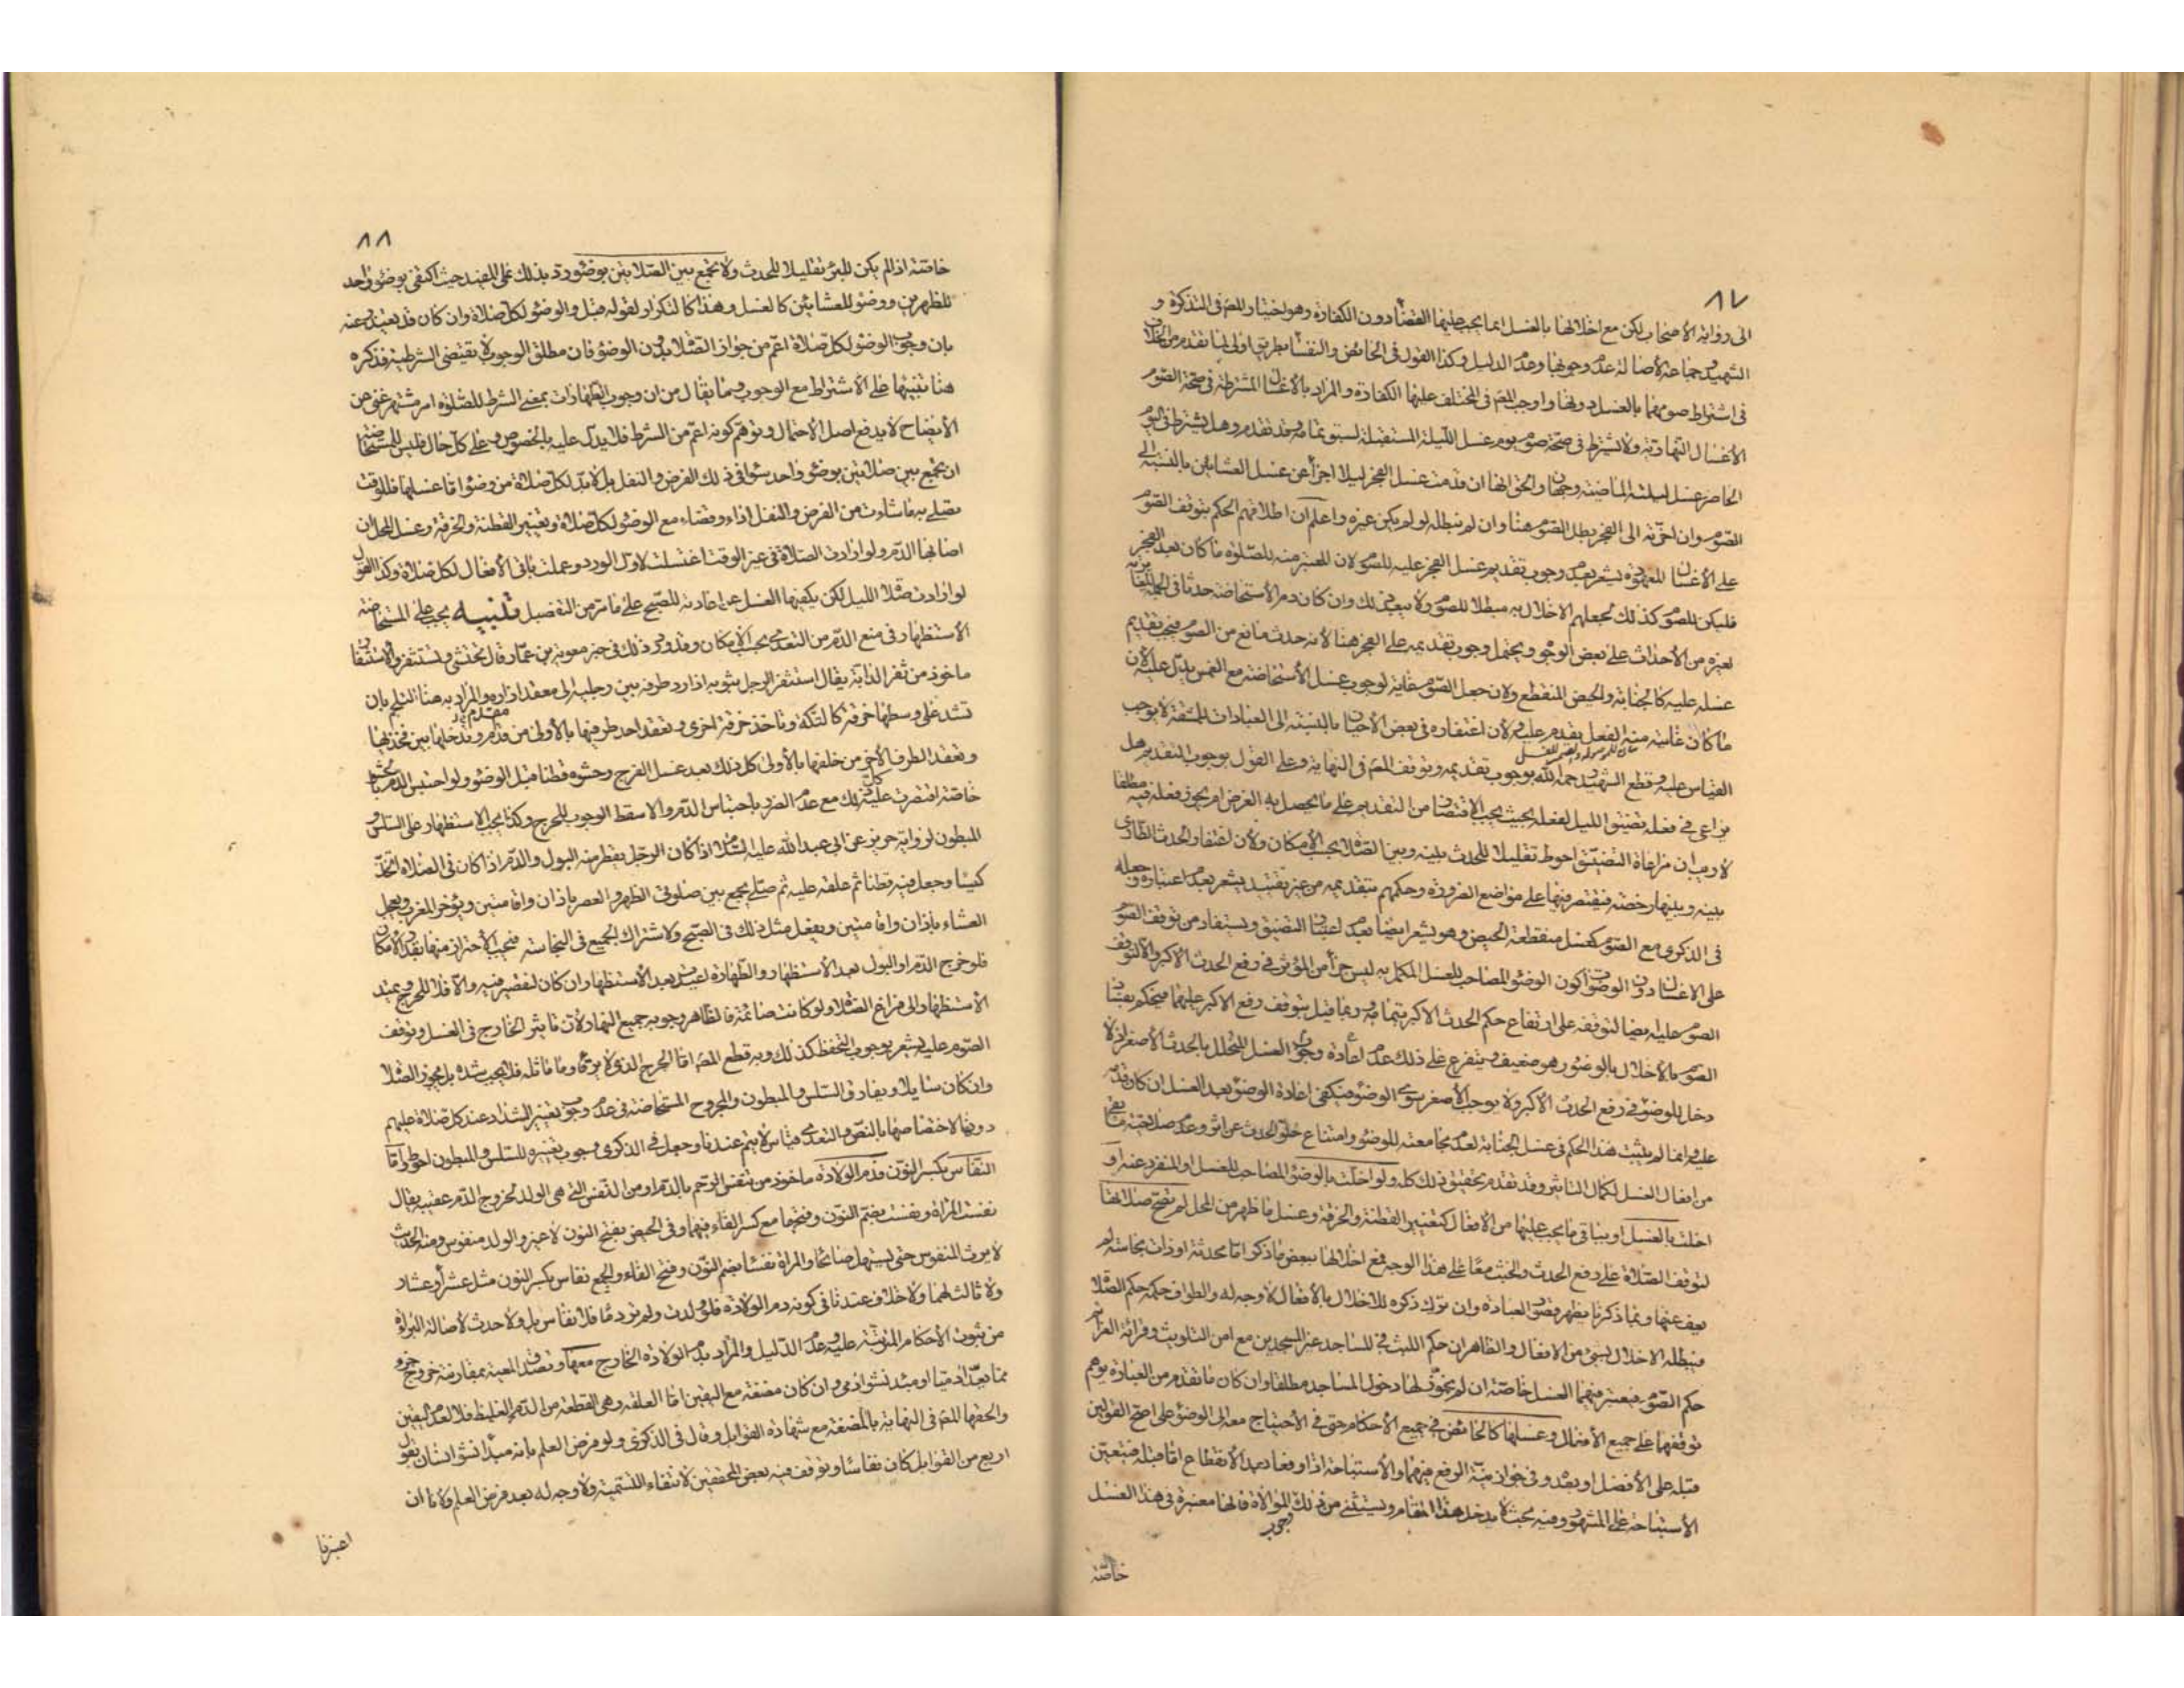 ٨٧
الى رواية الأصحاب لكن مع اخلالها بالغسل انما يجب عليها القضاء دون الكفارة وهو اختيار المص في التذكرة و
الشهيد وجماعة لأصالة عدم وجوبها وعدم الدليل وكذا القول في الحائض والنفساء بطريق اولى لما تقدم من الخلاف
في اشتراط صومهما بالغسل دونها واوجب المص في المختلف عليها الكفارة والمراد بالأغسال المشترطة في صحة الصوم
الأغسال النهارية ولا يشترط في صحة صوم يوم غسل الليلة المستقبلة لسبق تمامه وقد تقدم وهل يشترط في اليوم
الحاضر غسل ليلته الماضية وجهان والحق انها ان قدمت غسل الفجر ليلا اجزأ عن غسل العشائين بالنسبة الى
الصوم وان اخرته الى الفجر بطل الصوم هنا وان لم نبطله لو لم يكن غيره واعلم ان اطلاقهم الحكم بتوقف الصوم
على الأغسال المعهودة يشعر بعدم وجوب تقديم غسل الفجر عليه للصوم لان المعتبر منه للصلوة ما كان بعد الفجر
فليكن للصوم كذلك لجعلهم الاخلال به مبطلا للصوم ولا يبعد في ذلك وان كان دم الأستحاضة حدثا في الجملة
لغيره من الأحداث على بعض الوجوه ويحتمل وجوب تقديمه على الفجر هنا لأنه حدث مانع من الصوم فيجب تقديم
غسله عليه كالجنابة والحيض المنقطع ولان جعل الصوم غاية لوجوب غسل الأستحاضة مع الغمس يدل عليه لأن
ما كان غايته منه الفعل يقدم عليه ولأن اغتفاره في بعض الأحيان بالنسبة الى العبادات للمشقة لا يوجب
القياس عليه وقطع الشهيد رحمه الله بوجوب تقديمه وتوقف المص في النهاية وعلى القول بوجوب التقديم هل
يراعى في فعله تضيق الليل لفعله بحيث يجب الاقتصار من التقديم على ما يحصل به الغرض ام يجوز فعله فيه مطلقا
لا ريب ان مراعاة التضيق احوط تقليلا للحدث بينه وبين الصلاة بحسب الأمكان ولأن اغتفار الحدث الطارى
بينه وبينها رخصة فيقتصر فيها على مواضع الضرورة وحكمهم بتقديمه من غير تقييد يشعر بعدم اعتباره وجعله
في الذكرى مع الصوم كغسل منقطعة الحيض وهو يشعر ايضا بعدم اعتبار التضيق ويستفاد من توقف الصوم
على الاغسال دون الوضوء كون الوضوء المصاحب للغسل المكمل به ليس جزأ من المؤثر في رفع الحدث الاكبر والا لتوقف
الصوم عليه ايضا لتوقفه على ارتفاع حكم الحدث الاكبر بتمامه وربما قيل بتوقف رفع الاكبر عليهما فيحكم بفساد
الصوم بالأخلال بالوضوء وهو ضعيف ويتفرع على ذلك عدم اعادة وجوب الغسل المتخلل بالحدث الأصغر اذ لا
دخل للوضوء في رفع الحدث الاكبر ولا يوجب الأصغر سوى الوضوء فيكفى اعادة الوضوء بعد الغسل ان كان قدمه
عليه وانما لم يثبت هذا الحكم في غسل الجنابة لعدم مجامعته للوضوء وامتناع خلو الحدث عن اثر وعدم صلاحية ما بقى
من افعال الغسل لكمال التأثير وقد تقدم تحقيق ذلك كله ولو اخلت بالوضوء المصاحب للغسل او المنفرد عنه او
اخلت بالغسل او بباقي ما يجب عليها من الأفعال كتغيير القطنة والخرقة وغسل ما ظهر من المحل لم تصح صلاتها
لتوقف الصلاة على رفع الحدث والخبث معا على هذا الوجه فمع اخلالها ببعض ما ذكر اما محدثة او ذات نجاسة لم
يعف عنها وبما ذكرنا يظهر قصور العبادة وان ترك ذكره للاخلال بالأفعال لا وجه له والطواف حكمه حكم الصلاة
فيبطله الاخلال بشئ من الافعال والظاهر ان حكم اللبث في المساجد غير المسجدين مع امن التلويث وقرائة العزائم
حكم الصوم فيعتبر فيهما الغسل خاصة ان لم نجوز لها دخول المساجد مطلقا وان كان ما تقدم من العبارة يوهم
توقفهما على جميع الأفعال وغسلها كالحائض في جميع الأحكام حتى في الأحتياج معه الى الوضوء على اصح القولين
قبله على الأفضل او بعده وفي جواز نية الرفع فيهما والأستباحة اذا وقعا بعد الأنقطاع اما قبله فيتعين
الأستباحة على المشهور وفيه بحث لا يدخل هذا المقام ويستثنى من ذلك الموالاة فانها معتبرة في هذا الغسل
وجوبا
خاصة
٨٨
خاصة اذا لم يكن للبرء تقليلا للحدث ولا تجمع بين الصلاتين بوضوء ورد بذلك على المفيد حيث اكتفى بوضوء واحد
للظهرين ووضوء للعشائين كالغسل وهذا كالتكرار لقوله قبل والوضوء لكل صلاة وان كان قد يعتذر عنه
بان وجوب الوضوء لكل صلاة اعم من جواز الصلاة بدون الوضوء فان مطلق الوجوب لا يقتضى الشرطية فذكره
هنا تنبيها على الاشتراط مع الوجوب وما يقال من ان وجوب الطهارات بمعنى الشرط للصلوة امر مشتهر غنى عن
الأيضاح لا يدفع اصل الأحتمال وتوهم كونه اعم من الشرط فلا يدل عليه بالخصوص وعلى كل حال فليس للمستحاضة
ان تجمع بين صلاتين بوضوء واحد سواء في ذلك الفرض والنفل بل لا بد لكل صلاة من وضوء اما غسلها فللوقت
تصلى به ما شاءت من الفرض والنفل اداء وقضاء مع الوضوء لكل صلاة وتغيير القطنة والخرقة وغسل المحل ان
اصابها الدم ولو ارادت الصلاة في غير الوقت اغتسلت لاول الورد وعملت باقى الأفعال لكل صلاة وكذا القول
لو ارادت صلاة الليل لكن يكفيها الغسل عن اعادته للصبح على ما مر من التفصيل تنبيه يجب على المستحاضة
الأستظهار في منع الدم من التعدى بحسب الأمكان وقد ورد ذلك في خبر معوية بن عمار قال تحتشى وتستثفر والاستثفار
ماخوذ من ثفر الدابة يقال استثفر الرجل بثوبه اذا رد طرفه بين رجليه الى معقد ازاره والمراد به هنا التلجم بان
تشد على وسطها خرقة كالتكة وتاخذ خرقة اخرى وتعقد احد طرفيها بالأولى من قدام وتدخلها بين فخذيها
وتعقد الطرف الأخر من خلفها بالأولى كل ذلك بعد غسل الفرج وحشوه قطنا قبل الوضوء ولو احتبس الدم بالحشو
خاصة اقتصرت عليه كل ذلك مع عدم الضرر باحتباس الدم والا سقط الوجوب للحرج وكذا يجب الاستظهار على السلس و
المبطون لرواية حريز عن ابى عبد الله عليه السلام اذا كان الرجل يقطر منه البول والدم اذا كان في الصلاة اتخذ
كيسا وجعل فيه قطنا ثم علقه عليه ثم صلى يجمع بين صلوتى الظهر والعصر باذان واقامتين ويؤخر المغرب ويعجل
العشاء باذان واقامتين ويفعل مثل ذلك في الصبح ولاشتراك الجميع في النجاسة فيجب الأحتراز منها بقدر الأمكان
فلو خرج الدم او البول بعد الأستظهار والطهارة اعيدت بعد الأستظهار ان كان لتقصير فيه والا فلا للحرج ويمتد
الأستظهار الى فراغ الصلاة ولو كانت صائمة فالظاهر وجوبه جميع النهار لأن تأثير الخارج في الغسل وتوقف
الصوم عليه يشعر بوجوب التحفظ كذلك وبه قطع المص اما الجرح الذى لا يرقأ وما ماثله فلا يجب شده بل تجوز الصلاة
وان كان سايلا ويفارق السلس والمبطون والمجروح المستحاضة في عدم وجوب تغيير الشداد عند كل صلاة عليهم
دونها لاختصاصها بالنص والتعدى قياس لا يتم عندنا وجعل في الذكرى وجوب تغييره للسلس والمبطون احوط واما
النفاس بكسر النون فدم الولادة ماخوذ من تنفس الرحم بالدم او من النفس التى هى الولد لخروج الدم عقيبه يقال
نفست المرأة ونفست بضم النون وفتحها مع كسر الفاء فيهما وفى الحيض بفتح النون لا غير والولد منفوس ومنه الحديث
لا يرث المنفوس حتى يستهل صائحا والمرأة نفساء بضم النون وفتح الفاء والجمع نفاس بكسر النون مثل عشراء وعشار
ولا ثالث لهما ولا خلاف عندنا في كونه دم الولادة فلو ولدت ولم تر دما فلا نفاس بل ولا حدث لأصالة البرائة
من ثبوت الأحكام المترتبة عليه وعدم الدليل والمراد بدم الولادة الخارج معها وتصدق المعية بمقارنة خروج جزء
مما يعد ادميا او مبدء نشو ادمى وان كان مضغة مع اليقين اما العلقة وهى القطعة من الدم الغليظ فلا لعدم اليقين
والحقها المص في النهاية بالمضغة مع شهادة القوابل وقال في الذكرى ولو فرض العلم بانه مبدأ نشو انسان بقول
اربع من القوابل كان نفاسا وتوقف فيه بعض المحققين لانتفاء التسمية ولا وجه له بعد فرض العلم ولأنا ان
اعتبرنا